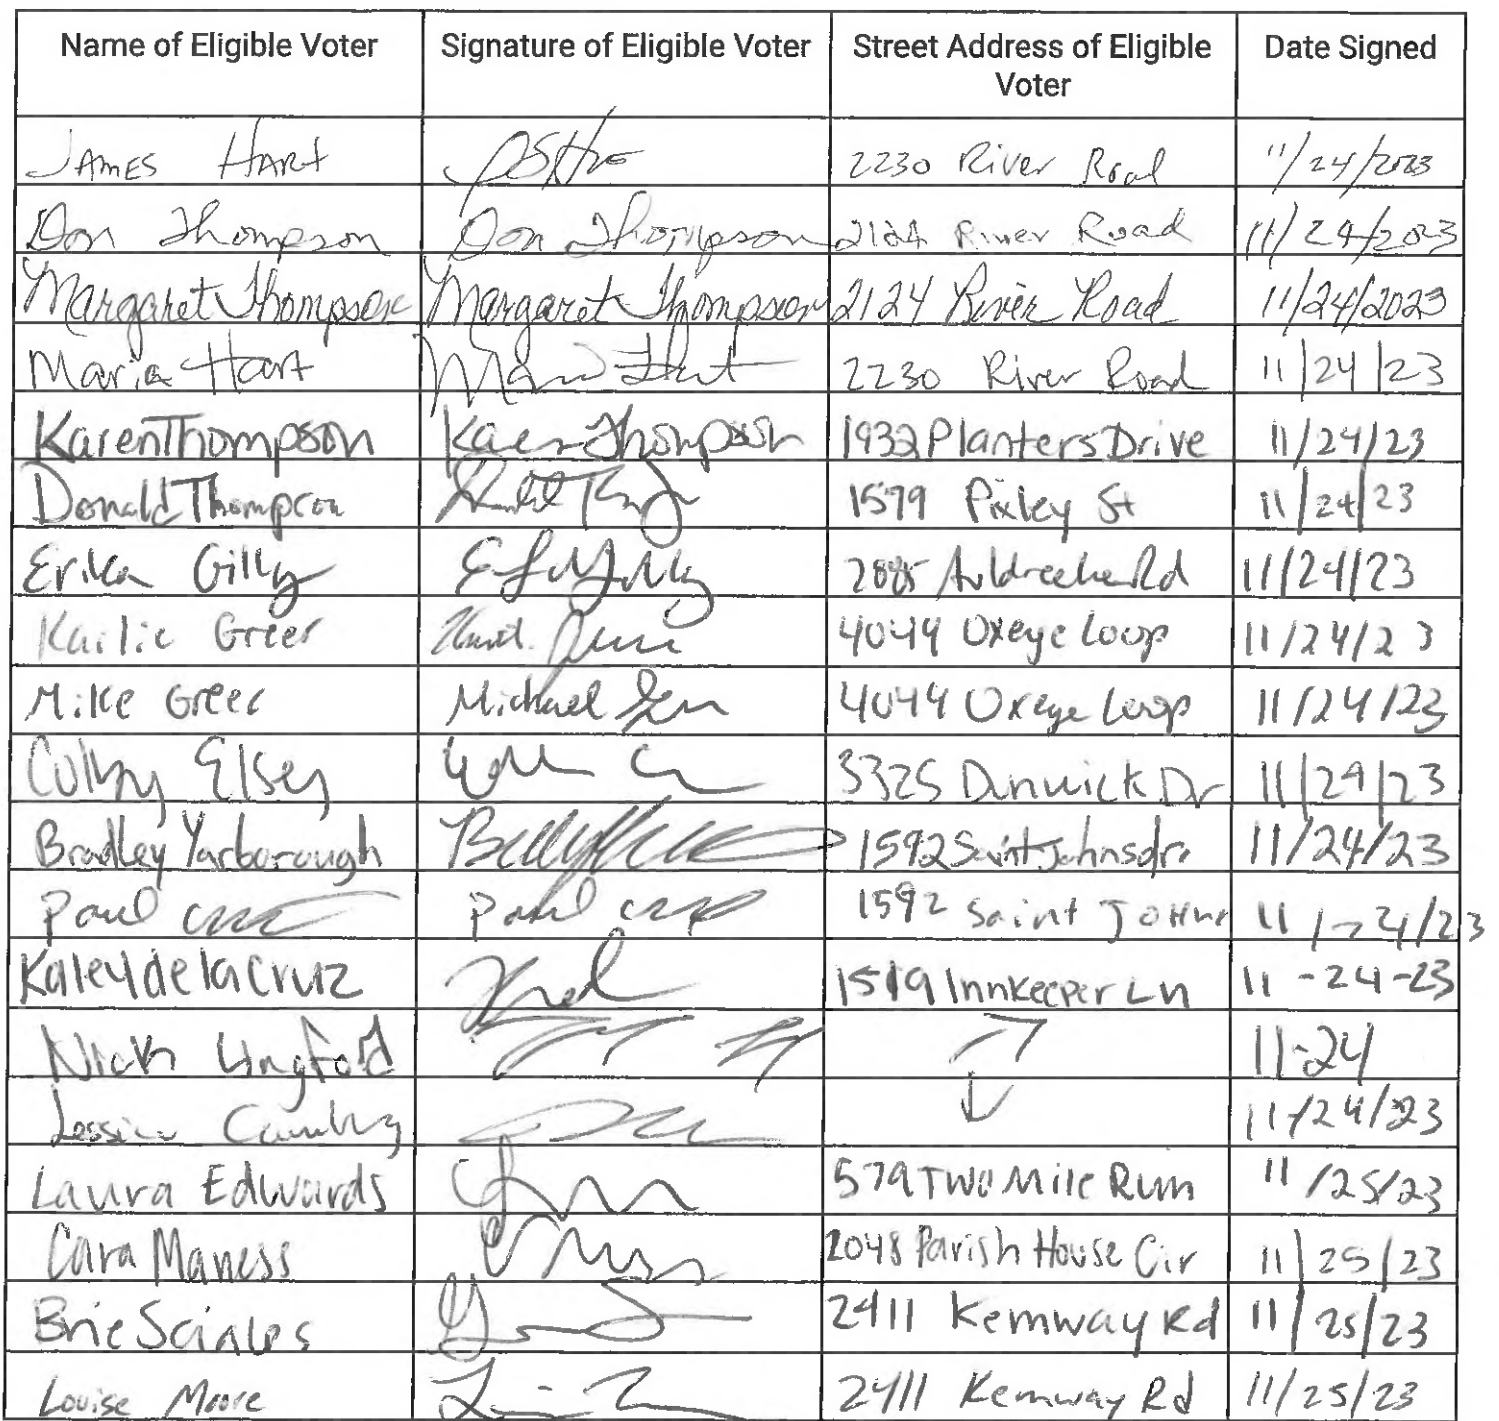 Name of Eligible Voter Signature of Eligible Voter Street Address of Eligible Voter Date Signed
JAMES HART 2230 River Road 11/24/2023
Don Thompson Don Thompson 2124 River Road 11/24/2023
Margaret Thompson Margaret Thompson 2124 River Road 11/24/2023
Maria Hart Maria Hart 2230 River Road 11/24/23
Karen Thompson Karen Thompson 1932 Planters Drive 11/24/23
Donald Thompson 1579 Pixley St 11/24/23
Erika Gilly Rd 11/24/23
Kailie Greer 4044 Oxeye Loop 11/24/23
Mike Greer Michael Greer 4044 Oxeye Loop 11/24/23
Colby Elsey 3325 Dunwick Dr 11/24/23
Bradley Yarborough 1592 Saint Johns dr 11/24/23
Paul Paul 1592 Saint JOHns 11/24/23
Kaley de la Cruz 1519 Innkeeper Ln 11-24-23
Nick 11-24
11/24/23
Laura Edwards 579 Two Mile Run 11/25/23
Cara Maness 2048 Parish House Cir 11/25/23
Brie 2411 Kemway Rd 11/25/23
Louise Moore 2411 Kemway Rd 11/25/23